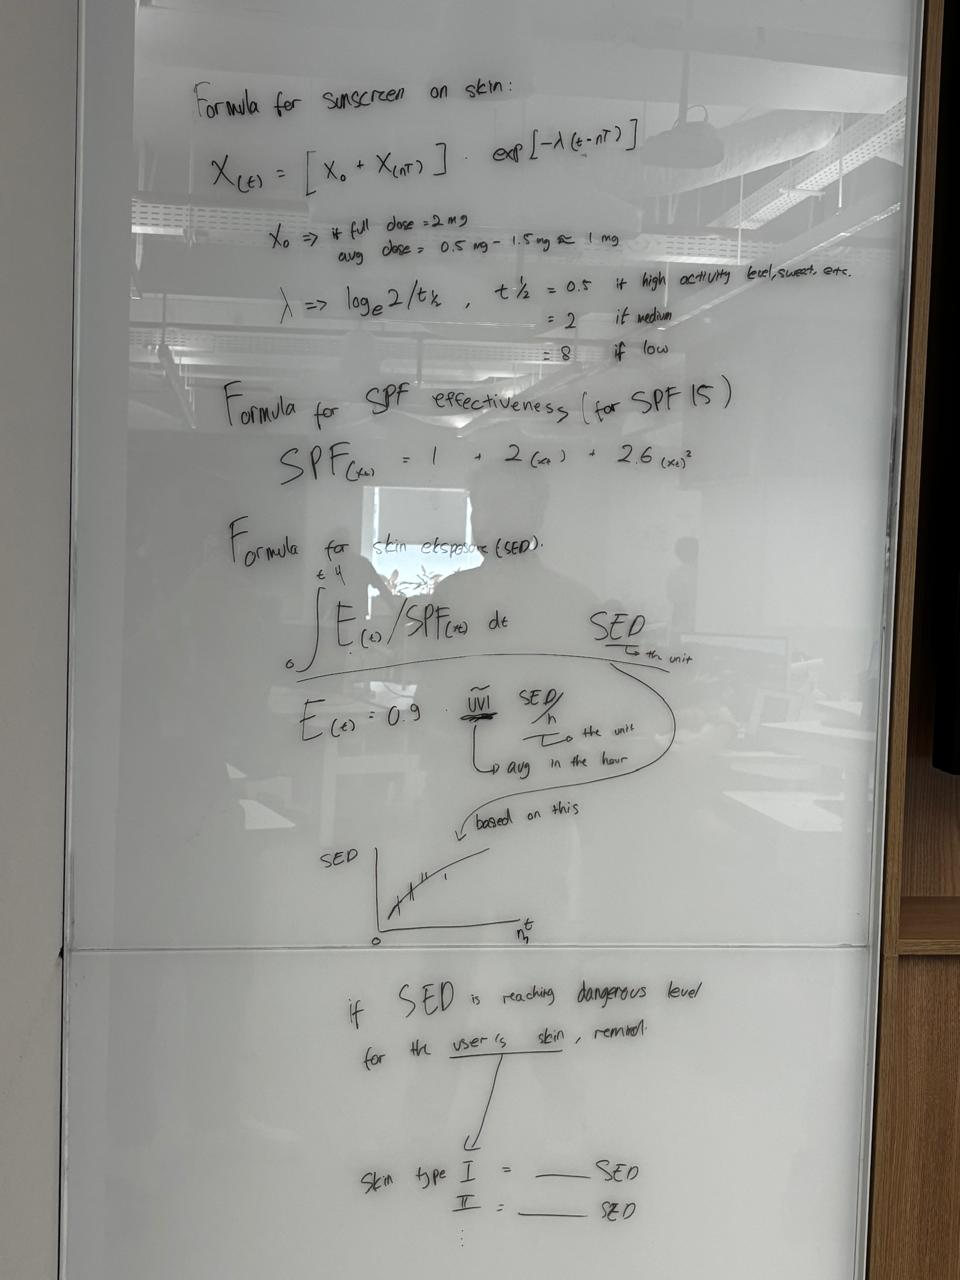 Formula for sunscreen on skin:
X(t) = [X₀ + X(nT)] · exp[-λ(t-nT)]
X₀ => if full dose = 2 mg
avg dose = 0.5 mg - 1.5 mg ≈ 1 mg
λ => logₑ2/t½ , t½ = 0.5 if high activity level, sweat, etc.
= 2 if medium
= 8 if low
Formula for SPF effectiveness (for SPF 15)
SPF(xt) = 1 + 2(xt) + 2.6(xt)²
Formula for skin eksposure (SED).
∫₀ᵗ E(t)/SPF(xt) dt SED
the unit
E(t) = 0.9 · UVI SED/h
the unit
avg in the hour
based on this
SED
0 t
if SED is reaching dangerous level
for the user's skin, remind.
Skin type I = ___ SED
II = ___ SED
⋮